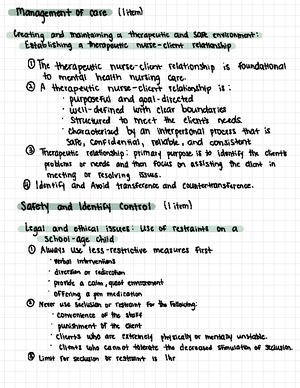 Management of care (1 item)
Creating and maintaining a therapeutic and safe environment:
Establishing a therapeutic nurse-client relationship
① The therapeutic nurse-client relationship is foundational
to mental health nursing care.
② A therapeutic nurse-client relationship is:
· purposeful and goal-directed
· well-defined with clear boundaries
· structured to meet the client's needs
· characterized by an interpersonal process that is
safe, confidential, reliable, and consistent
③ Therapeutic relationship: primary purpose is to identify the client's
problems or needs and then focus on assisting the client in
meeting or resolving issues.
④ Identify and Avoid transference and countertransference.
Safety and Identify Control (1 item)
Legal and ethical issues: Use of restraints on a
school-age child
① Always use less-restrictive measures first
· verbal interventions
· diversion or redirection
· provide a calm, quiet environment
· offering a prn medication
② Never use seclusion or restraint for the following:
· convenience of the staff
· punishment of the client
· clients who are extremely physically or mentally unstable.
· clients who cannot tolerate the decreased stimulation of seclusion.
③ Limit for seclusion or restraint is 1hr